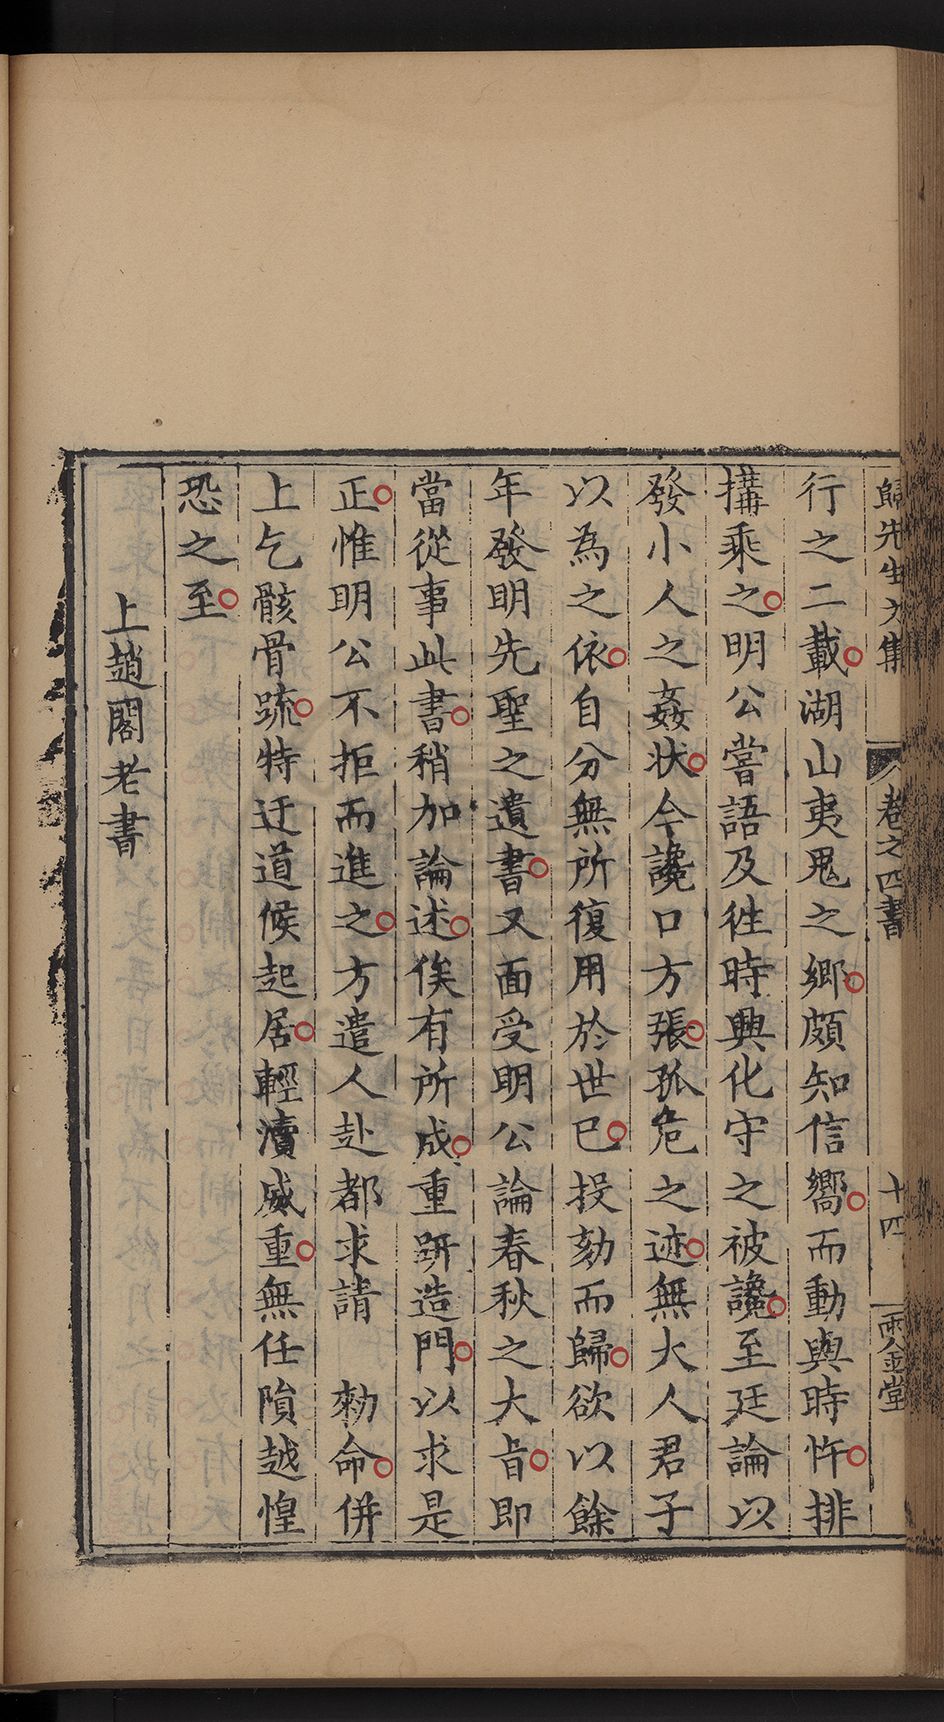 歸先生文集 卷之四書 十四 雨金堂
行之二載湖山夷鬼之鄉頗知信嚮而動與時忤排
搆乘之明公嘗語及徃時興化守之被讒至廷論以
發小人之姦状今讒口方張孤危之迹無大人君子
以為之依自分無所復用於世已投劾而歸欲以餘
年發明先聖之遺書又面受明公論春秋之大旨即
當從事此書稍加論述俟有所成重趼造門以求是
正惟明公不拒而進之方遣人赴都求請 勑命併
上乞骸骨䟽特迂道候起居輕瀆威重無任隕越惶
恐之至
上趙閣老書